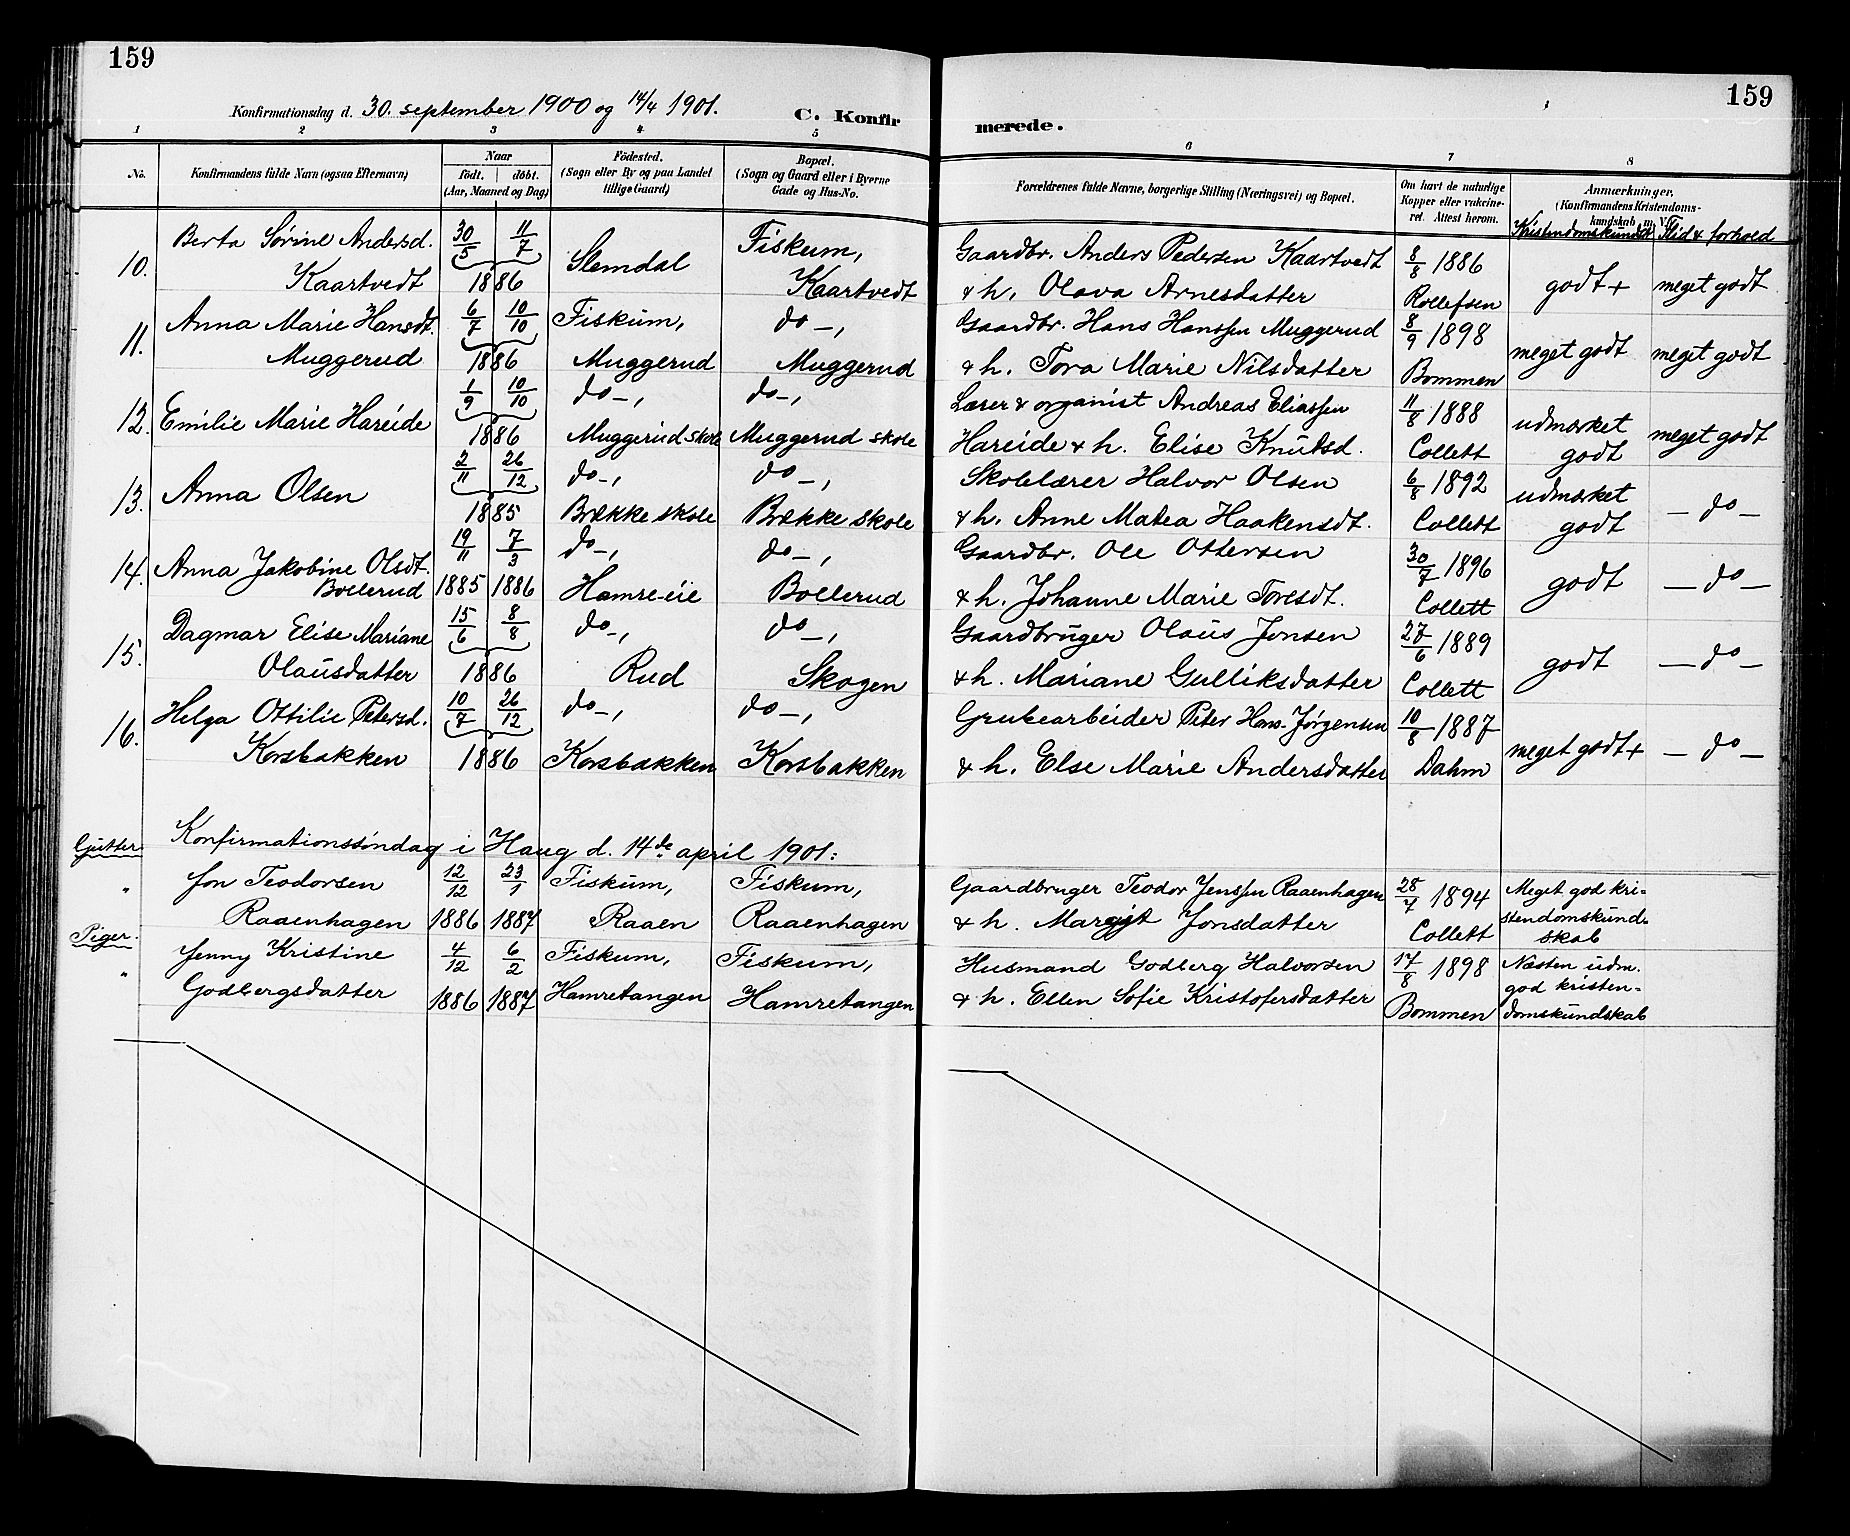 159
159
Konfirmationsdag d. 30. september 1900 og 14/4 1901.
C. Konfirmerede.
1 2 3 4 5 6 7 8
No.
Konfirmandens fulde Navn (ogsaa Efternavn)
Naar
födt. | döbt.
(Aar, Maaned og Dag)
Födested.
(Sogn eller By og paa Landet
tillige Gaard)
Bopæl.
(Sogn og Gaard eller i Byerne
Gade og Hus-No.
Forældrenes fulde Navne, borgerlige Stilling (Næringsvei) og Bopæl.
Om havt de naturlige
Kopper eller vakcine-
ret. Attest herom.
Anmærkninger.
(Konfirmandens Kristendoms-
kundskab m. V.)
Kristendomskundsk. Flid & forhold
Berta Sørine Andersd. 30/5 11/7 Fiskum, Gaardbr. Anders Pedersen Kaartvedt 8/8 1886
10. Kaartvedt 1886 Slemdal Kaartvedt & h. Olava Arnesdatter Rollefsen godt + meget godt
Anna Marie Hansdt. 6/7 10/10 Fiskum, do —, Gaardbr. Hans Hanssen Muggerud 8/9 1898
11. Muggerud 1886 Muggerud Muggerud & h. Tora Marie Nilsdatter Bommen meget godt meget godt
12. Emilie Marie Hareide 1/9 10/10 do —, do —, Lærer & organist Andreas Eliassen 11/8 1888 udmærket
1886 Muggerud skole Muggerud skole Hareide & h. Elise Knutsd. Collett godt meget godt
13. Anna Olsen 2/11 26/12 do —, do —, Skolelærer Halvor Olsen 6/8 1892 udmærket
1885 Brække skole Brække skole & h. Anne Matea Haakensdt. Collett godt — do —
14. Anna Jakobine Olsdt. 19/11 7/3 do —, do —, Gaardbr. Ole Ottersen 30/7 1896
Bollerud 1885 1886 Hamre-eie Bollerud & h. Johanne Marie Toresdt. Collett godt — do —
Dagmar Elise Mariane 15/6 8/8 do —, do —, Gaardbruger Olaus Jonsen 27/6 1889
15. Olausdatter 1886 Rud Skogen & h. Mariane Gulliksdatter Collett godt — do —
Helga Ottilie Petersd. 10/7 26/12 do —, do —, Grubearbeider Peter Hans. Jørgensen 10/8 1887
16. Korsbakken 1886 Korsbakken Korsbakken & h. Else Marie Andersdatter Dahm meget godt + — do —
Gutter: Konfirmationssøndag i Haug d. 14de april 1901:
" Jon Teodorsen 12/12 23/1 Fiskum, Fiskum, Gaardbruger Teodor Jenssen Raaenhagen 28/7 1894 Meget god kri-
Raaenhagen 1886 1887 Raaen Raaenhagen & h. Margit Jonsdatter Collett stendomskund-
skab
Piger: Jenny Kristine 4/12 6/2 Fiskum, Fiskum, Husmand Godberg Halvorsen 17/8 1898 Næsten udm.
" Godbergsdatter 1886 1887 Hamretangen Hamretangen & h. Ellen Sofie Kristofersdatter Bommen god kristen-
domskundskab